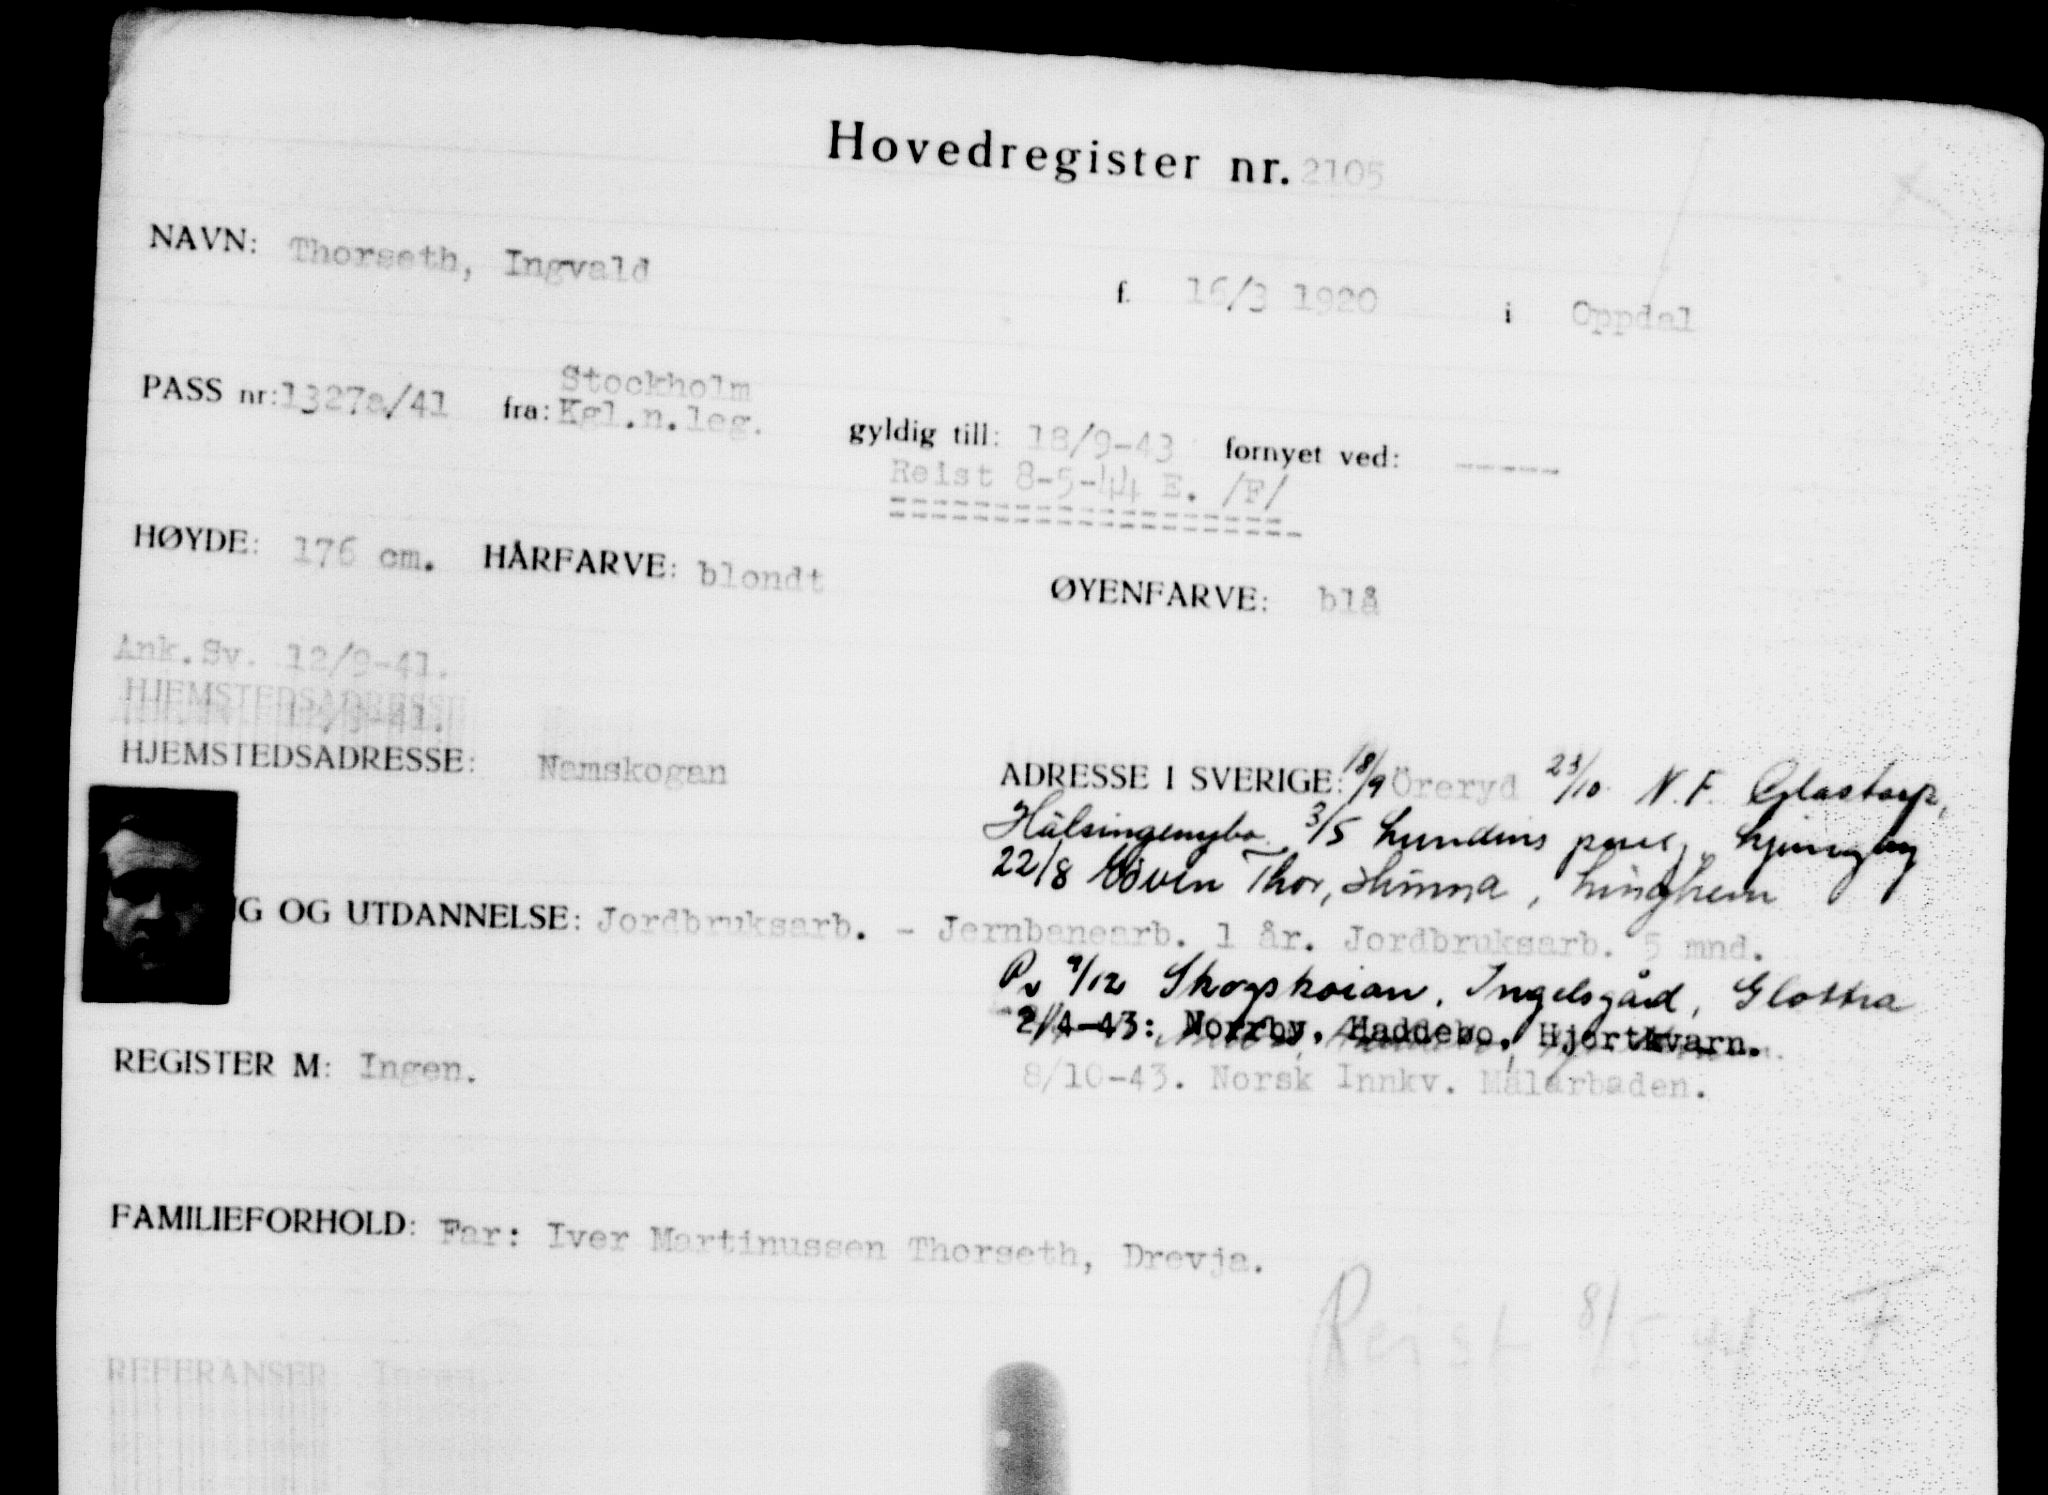 Hovedregister nr. 2105
NAVN: Thorseth, Ingvald f. 16/3 1920 i Oppdal
PASS nr: 1327a/41 fra: Stockholm Kgl.n.leg. gyldig till: 18/9-43 fornyet ved: -----
Reist 8-5-44 E. /F/
HØYDE: 176 cm. HÅRFARVE: blondt ØYENFARVE: blå
Ank.Sv. 12/9-41.
HJEMSTEDSADRESSE: Namskogan
ADRESSE I SVERIGE: 18/9 Öreryd 23/10 N.F. Glastorp,
3/5 Lundins
22/8 Thor, Linghem
G OG UTDANNELSE: Jordbruksarb. - Jernbanearb. 1 år. Jordbruksarb. 5 mnd.
9/12 Skogskoian, Ingelsgård, Glottra
2/4-43: Norrby, Haddebo, Hjortkvarn.
REGISTER M: Ingen.
8/10-43. Norsk Innkv. Mälarbaden.
FAMILIEFORHOLD: Far: Iver Martinussen Thorseth, Drevja.
Reist 8/5 44 F
REFERANSER Ingen.